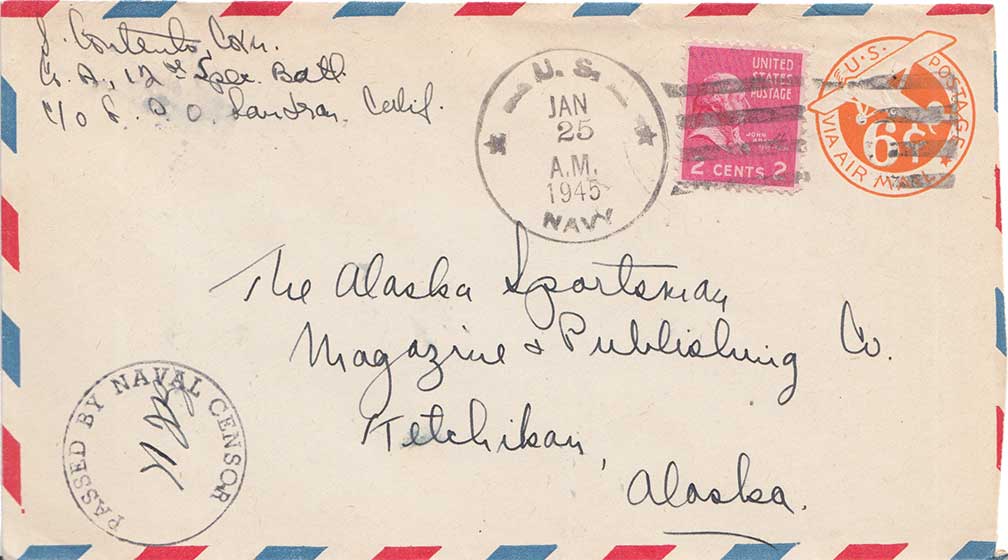 S. Contento, Cox.
Co. A, 12th Spec. Batt.
c/o F. P. O. San Fran. Calif.
U. S.
JAN
25
A.M.
1945
NAVY
UNITED
STATES
POSTAGE
JOHN
2 CENTS 2
U.S. POSTAGE
6¢
VIA AIR MAIL
The Alaska Sportsman
Magazine & Publishing Co.
Ketchikan,
Alaska.
PASSED BY NAVAL CENSOR